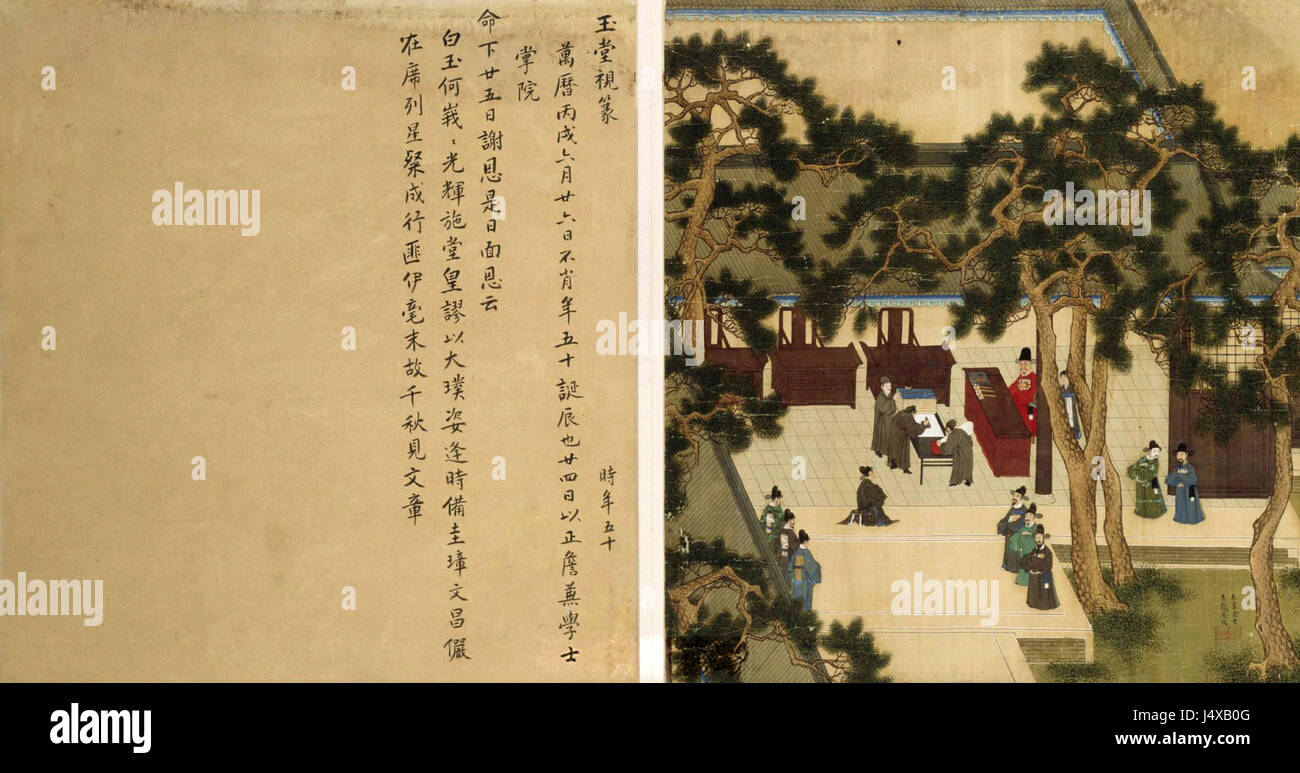 玉堂視篆
時年五十
萬曆丙戌六月廿六日不肖年五十誕辰也廿四日以正詹蒹學士
掌院
命下廿五日謝恩是日面恩云
白玉何峩〻光輝施堂皇謬以大璞姿逢時備圭璋文昌儼
在席列星粲成行匪伊毫末故千秋見文章
alamy stock photo
J4XB0G
www.alamy.com